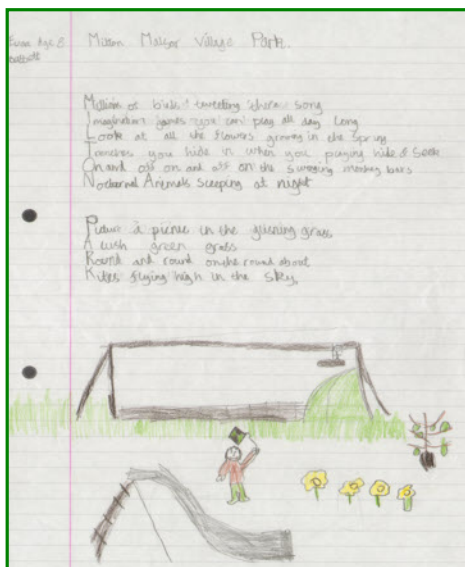 Evan Age 8
Milton Malsor Village Park.
Millions of birds tweeting there song
Imagination games you can play all day long
Look at all the flowers growing in the spring
Trenches you hide in when you playing hide & seek
On and off on and off on the swinging monkey bars
Nocturnal Animals sleeping at night
Picture a picnic in the glisning grass
A lush green grass
Round and round on the round about
Kites flying high in the sky.